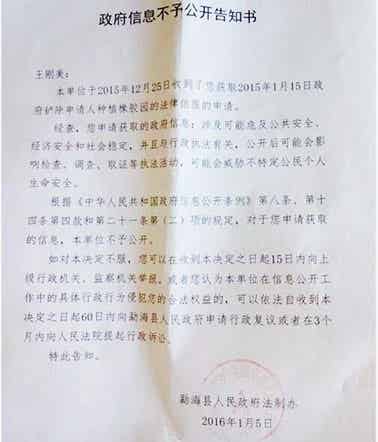 政府信息不予公开告知书
王刚美：
本单位于2015年12月25日收到了您获取2015年1月15日政
府铲除申请人种植橡胶园的法律依据的申请。
经查，您申请获取的政府信息：涉及可能危及公共安全、
经济安全和社会稳定，并且与行政执法有关，公开后可能会影
响检查、调查、取证等执法活动，可能会威胁不特定公民个人
生命安全。
根据《中华人民共和国政府信息公开条例》第八条、第十
四条第四款和第二十一条第（二）项的规定，对于您申请获取
的信息，本单位不予公开。
如对本决定不服，您可以在收到本决定之日起15日内向上
级行政机关、监察机关举报。或者您认为本单位在信息公开工
作中的具体行政行为侵犯您的合法权益的，可以依法自收到本
决定之日起60日内向勐海县人民政府申请行政复议或者在3个
月内向人民法院提起行政诉讼。
特此告知。
勐海县人民政府法制办
2016年1月5日